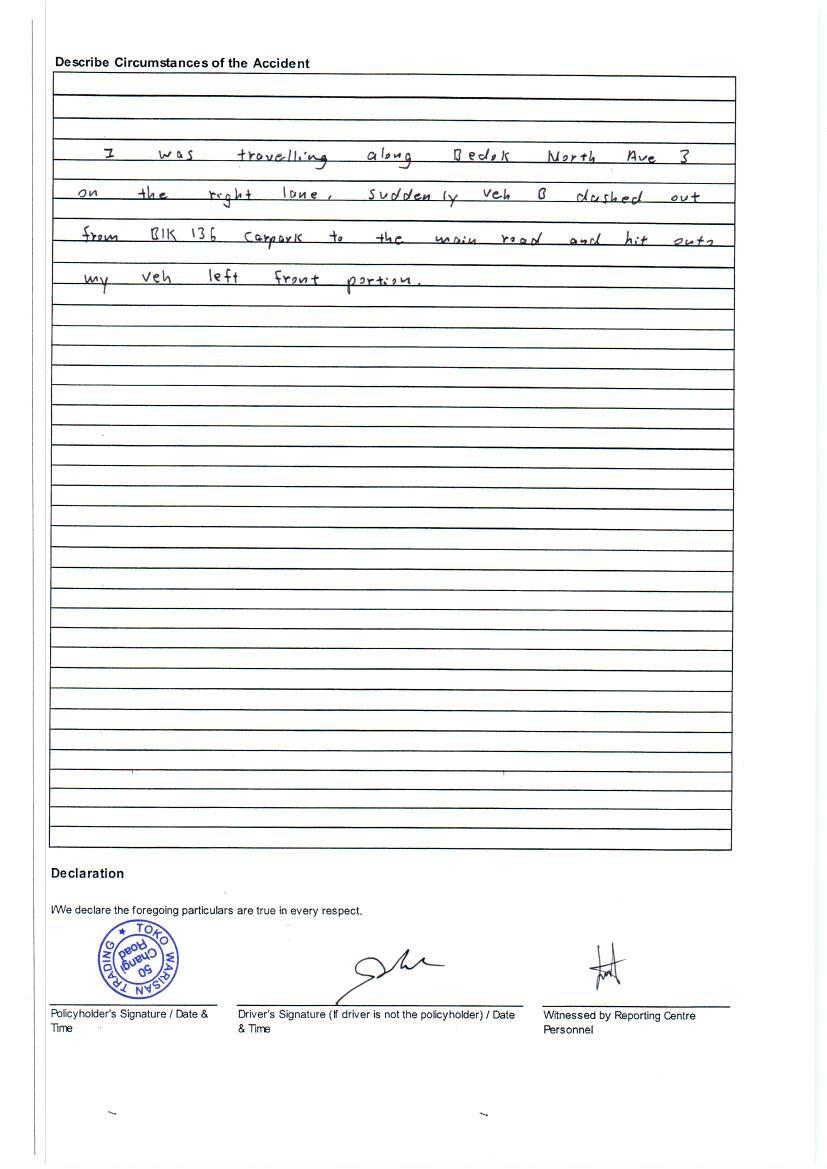 Describe Circumstances of the Accident
I was travelling along Bedok North Ave 3
on the right lane, suddenly veh B dashed out
from Blk 136 Carpark to the main road and hit onto
my veh left front portion.
Declaration
I/We declare the foregoing particulars are true in every respect.
★ TOKO WARISAN TRADING
50
Changi
Road
Policyholder's Signature / Date &
Time
Driver's Signature (If driver is not the policyholder) / Date
& Time
Witnessed by Reporting Centre
Personnel